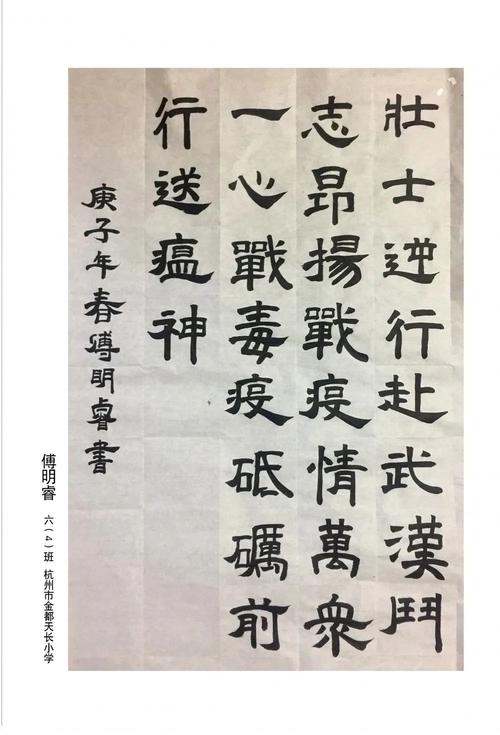 壯士逆行赴武漢鬥
志昂揚戰疫情萬衆
一心戰毒疫砥礪前
行送瘟神
庚子年春傅明睿書
傅明睿 六（4）班 杭州市金都天长小学